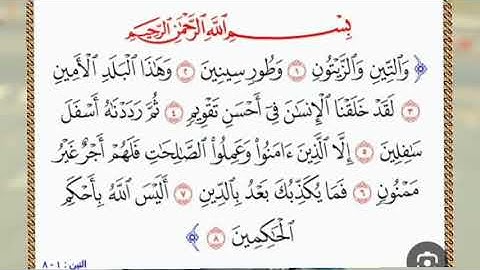 بِسْمِ اللَّهِ الرَّحْمَٰنِ الرَّحِيمِ
﴿ وَالتِّينِ وَالزَّيْتُونِ ١ وَطُورِ سِينِينَ ٢ وَهَٰذَا الْبَلَدِ الْأَمِينِ
٣ لَقَدْ خَلَقْنَا الْإِنسَٰنَ فِىٓ أَحْسَنِ تَقْوِيمٍ ٤ ثُمَّ رَدَدْنَٰهُ أَسْفَلَ
سَٰفِلِينَ ٥ إِلَّا الَّذِينَ ءَامَنُوا۟ وَعَمِلُوا۟ الصَّٰلِحَٰتِ فَلَهُمْ أَجْرٌ غَيْرُ
مَمْنُونٍ ٦ فَمَا يُكَذِّبُكَ بَعْدُ بِالدِّينِ ٧ أَلَيْسَ اللَّهُ بِأَحْكَمِ
الْحَٰكِمِينَ ٨ ﴾
التين : ١ - ٨